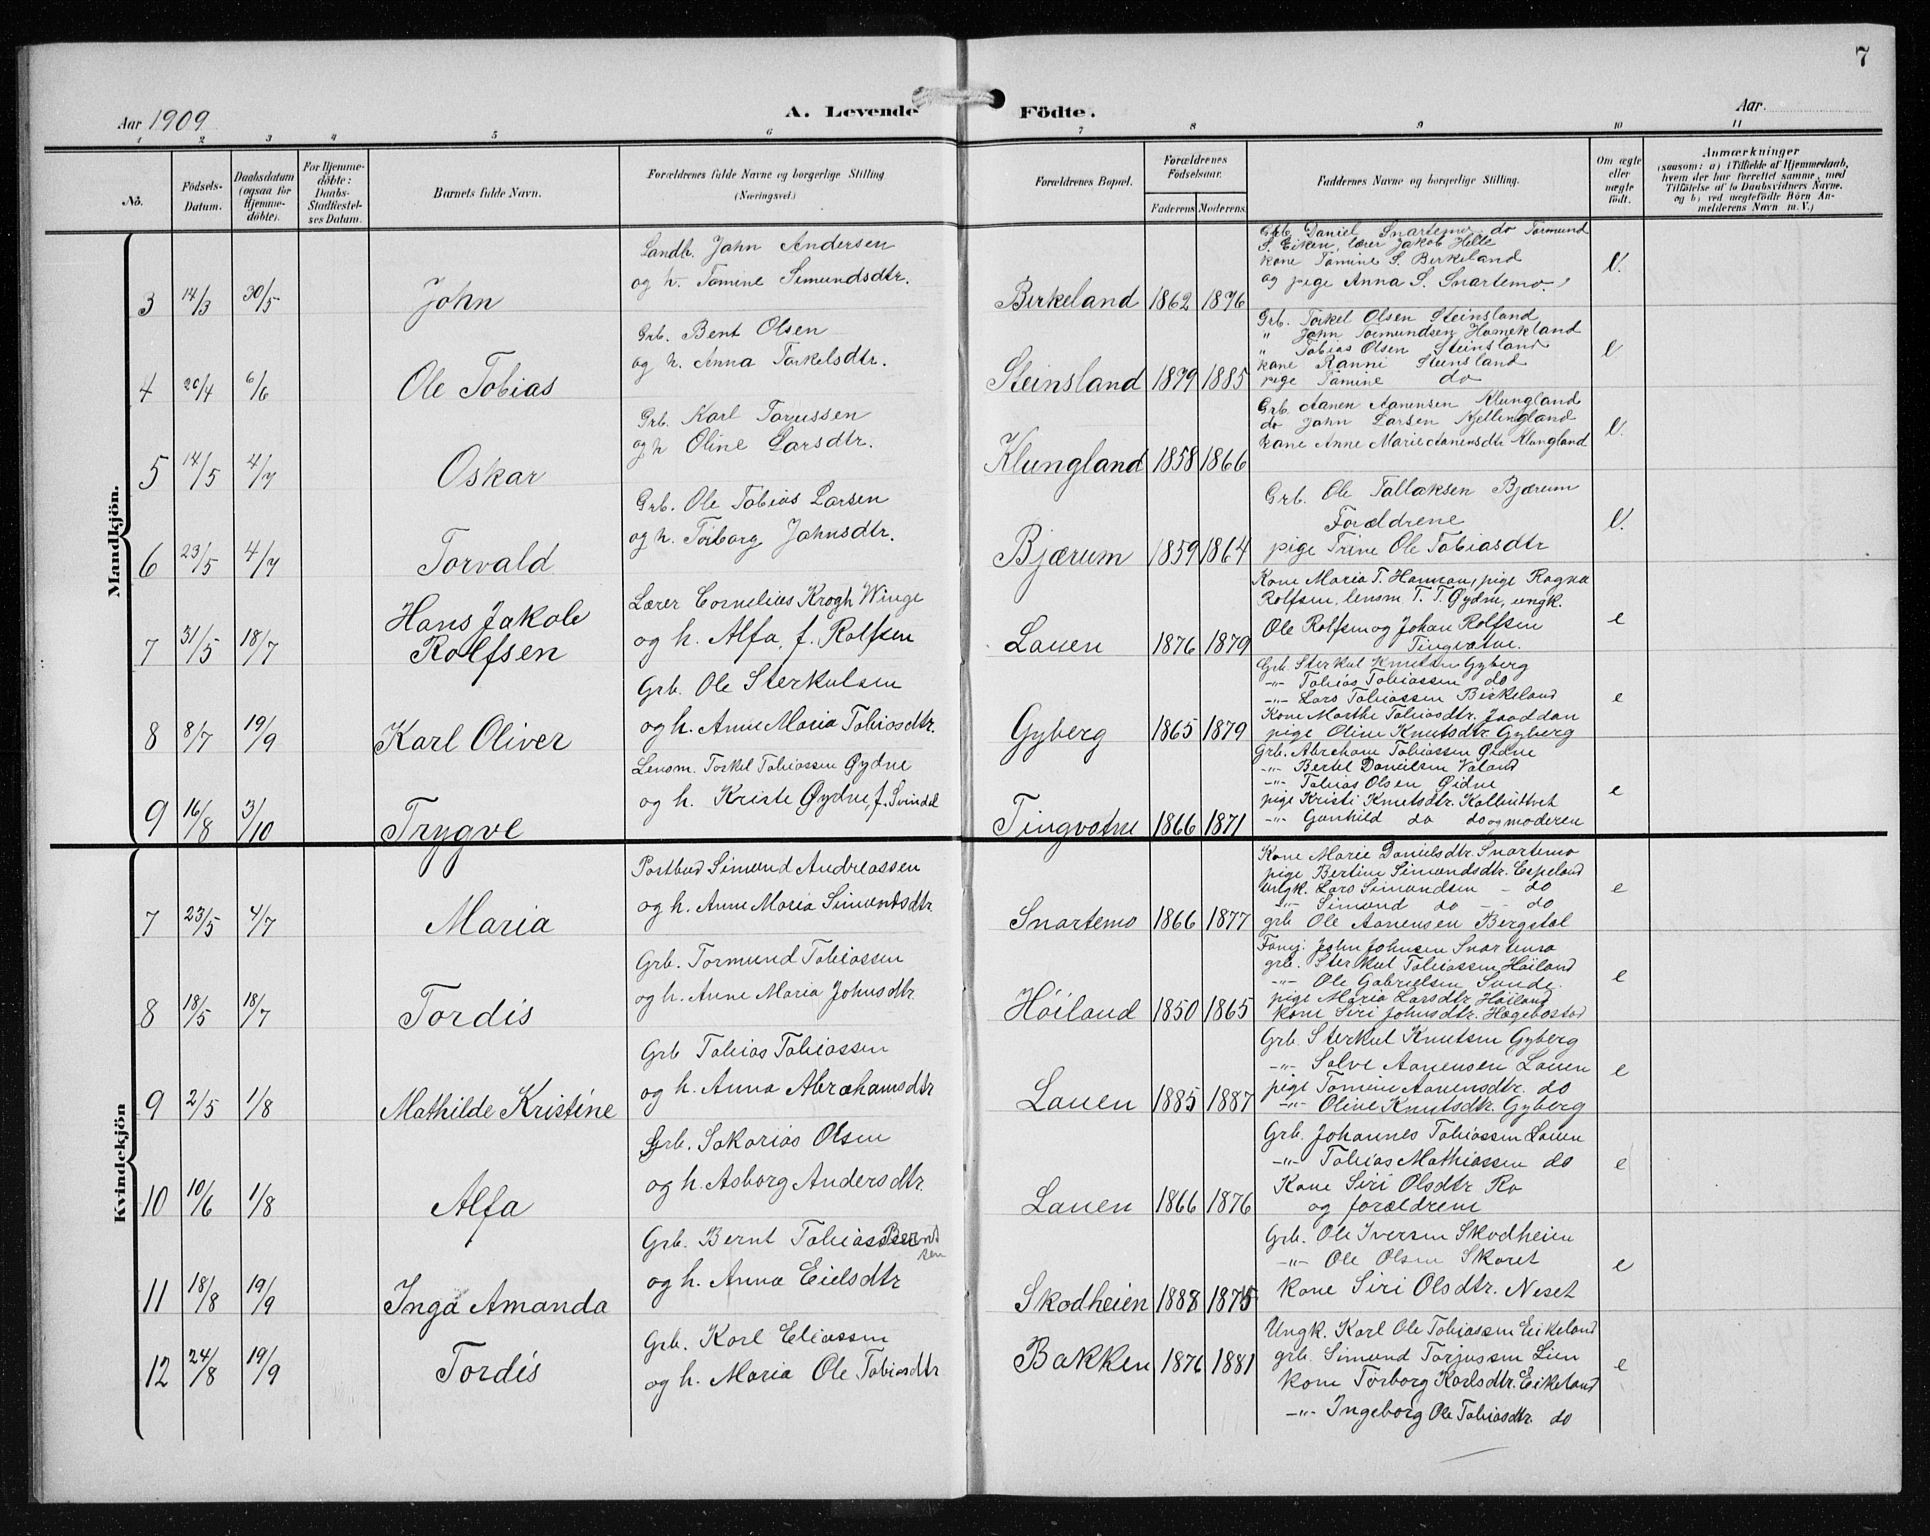 7
Aar 1909
A. Levende Födte.
Aar
1 2 3 4 5 6 7 8 9 10 11
No.
Födsels-Datum.
Daabsdatum (ogsaa for Hjemme-döbte).
For Hjemme-döbte: Daabs-Stadfæstel-ses Datum.
Barnets fulde Navn.
Forældrenes fulde Navne og borgerlige Stilling (Næringsvei.)
Forældrenes Bopæl.
Forældrenes Födselsaar.
Faderens Moderens
Faddernes Navne og borgerlige Stilling.
Om ægte eller uægte födt.
Anmærkninger
(saasom: a) i Tilfælde af Hjemmedaab, hvem der har forrettet samme, med Tilföielse af to Daabsvidners Navne, og b) ved uægtefödte Börn An-melderens Navn m. V.)
Mandkjön.
3 14/3 30/5 John
Landh. Jahn Andersen
og h. Tamine Simundsdtr.
Birkeland 1862 1876
Grb. Daniel Snartemo, do Tormund
S. Eiken, lærer Jakob Helle
kone Tamine S. Birkeland
og pige Anna S. Snartemo.
4 20/4 6/6 Ole Tobias
Grb. Bent Olsen
og h. Anna Torkelsdtr.
Steinsland 1879 1885 e
Grb. Torkel Olsen Steinsland
" John Tormundsen Homekland
" Tobias Olsen Steinsland
kone Ranni Steinsland
pige Tamine do
5 14/5 4/7 Oskar
Grb. Karl Tarjussen
og h Oline Larsdtr.
Klungland 1858 1866
Grb. Aanen Aanensen Klungland
do John Larsen Kjellingland
kone Anne Marie Aanensdtr Klungland
6 23/5 4/7 Torvald
Grb. Ole Tobias Larsen
og h. Torborg Jahnsdtr.
Bjærum 1859 1864
Grb. Ole Tallaksen Bjærum
Forældrene
pige Trine Ole Tobiasdtr
7 31/5 18/7 Hans Jakob Rolfsen
Lærer Cornelius Krogh Winge
og h. Alfa, f. Rolfsen
Lauen 1876 1879 e
Kone Maria T. Hamran, pige Ragna
Rolfsen, lensm. T. T. Øydne, ungk.
Ole Rolfsen og Johan Rolfsen
Tingvatne.
8 8/7 19/9 Karl Oliver
Grb. Ole Sterkulsen
og h. Anne Maria Tobiasdtr.
Gyberg 1865 1879 e
Grb. Sterkul Knutsen Gyberg
-"- Tobias Tobiassen do
-"- Lars Tobiassen Birkeland
Kone Marthe Tobiasdtr.
pige Oline Knutsdtr. Gyberg
9 16/8 3/10 Trygve
Lensm. Torkel Tobiassen Øydne
og h. Kriste Øydne, f. Svindel
Tingvatne 1866 1871 e
Grb. Abraham Tobiassen Øidne
-"- Bertel Danielsen Valand
-"- Tobias Olsen Øidne
pige Kristi Knutsdtr.
-"- Gunhild do do og moderen
Kvindekjön
7 23/5 4/7 Maria
Postbud Simund Andreassen
og h. Anne Maria Simundsdtr
Snartemo 1866 1877 e
Kone Marie Danielsdtr. Snartemo
pige Bertine Simundsdtr. Espeland
ungk. Lars Simundsen - do
-"- Simund do - - do
grb Ole Aanensen Bergstøl
8 18/5 18/7 Tordis
Grb. Tormund Tobiassen
og h. Anne Maria Johnsdtr.
Höiland 1850 1865 e
Forvj. John Johnsen Snartemo
grb. Sterkul Tobiassen Höiland
-"- Ole Gabrielsen Sunde.
pige Maria Larsdtr. Höiland
kone Siri Johnsdtr. Hægebostad
9 2/5 1/8 Mathilde Kristine
Grb Tobias Tobiassen
og h. Anna Abrahamsdtr
Lauen 1885 1887 e
Grb. Sterkul Knutsen Gyberg
-"- Salve Aanensen Lauen
pige Tomine Aanensdtr. do
-"- Oline Knutsdtr. Gyberg
10 10/6 1/8 Alfa
Grb. Sakarias Olsen
og h. Asborg Andersdtr.
Lauen 1866 1876 e
Grb. Johannes Tobiassen Lauen
-"- Tobias Mathiassen do
Kone Siri Olsdtr. Ro
og forældrene
11 18/8 19/9 Inga Amanda
Grb. Bernt Tobias Berntsen
og h. Anna Eielsdtr
Skodheien 1888 1875 e
Grb. Ole Iversen Skodheien
-"- Ole Olsen Skaret
Kone Siri Olsdtr. Neset
12 24/8 19/9 Tordis
Grb. Karl Eliassen
og h. Maria Ole Tobiasdtr
Bakken 1876 1881 e
Ungk. Karl Ole Tobiassen Eikeland
grb. Simund Torjussen Lien
kone Torborg Karlsdtr. Eikeland
-"- Ingeborg Ole Tobiasdtr. do